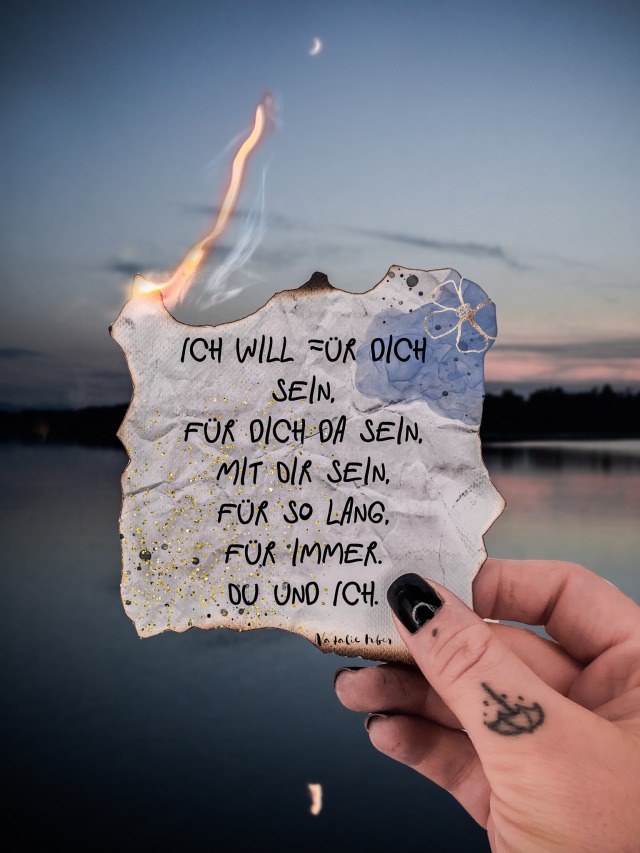 ICH WILL FÜR DICH
SEIN,
FÜR DICH DA SEIN,
MIT DIR SEIN,
FÜR SO LANG,
FÜR IMMER.
DU UND ICH.
Natalie